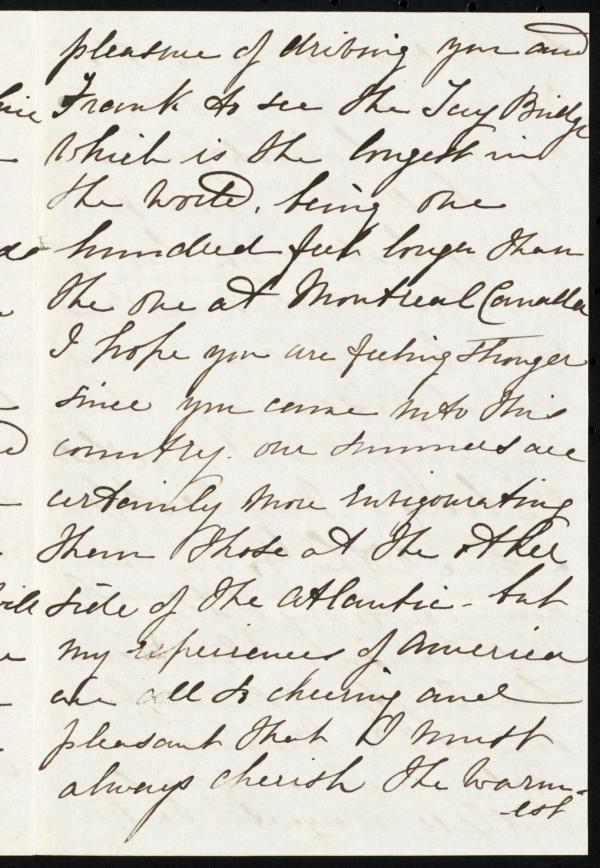 pleasure of driving you and
Frank to see the Tay Bridge
which is the longest in
the world, being one
hundred feet longer than
the one at Montreal Canada
I hope you are feeling stronger
since you came into this
country. our summers are
certainly more invigourating
then those at the other
side of the atlantic - but
my experiences of America
are all so cheering and
pleasant that I must
always cherish the warm-
est